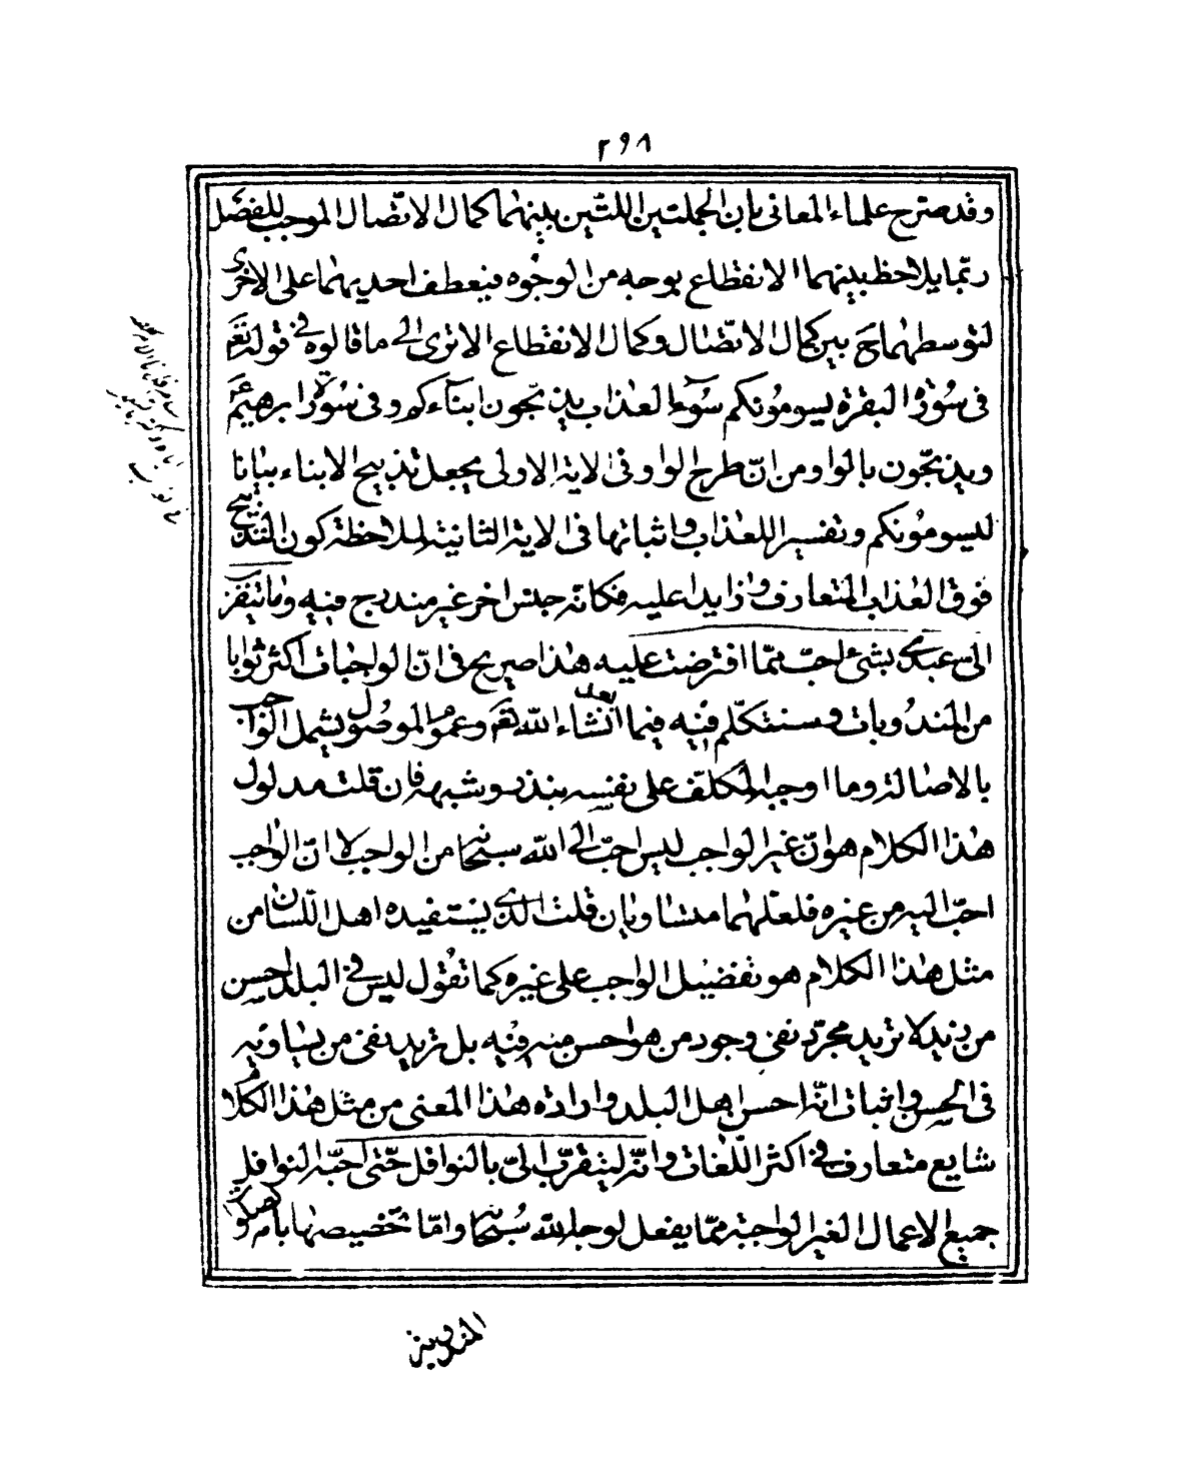 ٢٩٨
وقد صرح علماء المعانى بان الجملتين اللتين بينهما كمال الاتصال الموجب للفصل
ربما يلاحظ بينهما الانقطاع بوجه من الوجوه فيعطف احديهما على الاخرى
لتوسطهما ح بين كمال الاتصال وكمال الانقطاع الا ترى الى ما قالوه فى قوله تعٓ
فى سورة البقرة يسومونكم سوء العذاب يذبحون ابناءكم وفى سورة ابرهيم عٓ
ويذبحون بالواو من ان طرح الواو فى الاية الاولى يجعل تذبيح الابناء بيانا
ليسومونكم وتفسيرا للعذاب واثباتها فى الاية الثانية لملاحظة كون التذبيح
فوق العذاب المتعارف وزايدا عليه فكانه جنس اخر غير مندرج فيه وما يتقرب
الى عبدى بشئ احب مما افترضت عليه هذا صريح فى ان الواجبات اكثر ثوابا
من المندوبات وسنتكلم فيه فيما بعد انشاء الله تعٓ وعموم الموصول يشمل الواجب
بالاصالة وما اوجبه المكلف على نفسه بنذر وشبهه فان قلت مدلول
هذا الكلام هو ان غير الواجب ليس احب الى الله سبحانه من الواجب لا ان الواجب
احب اليه من غيره فلعلهما متساويان قلت الذى يستفيده اهل اللسان من
مثل هذا الكلام هو تفضيل الواجب على غيره كما تقول ليس فى البلد احسن
من زيد لا تريد مجرد نفى وجود من هو احسن منه فيه بل تريد نفى من يساويه
فى الحسن واثبات انه احسن اهل البلد وارادة هذا المعنى من مثل هذا الكلام
شايع متعارف فى اكثر اللغات وانه ليتقرب الى بالنوافل حتى احبه النوافل
جميع الاعمال الغير الواجبة مما يفعل لوجه الله سبحانه واما تخصيصها بالصلوات
المندوبة